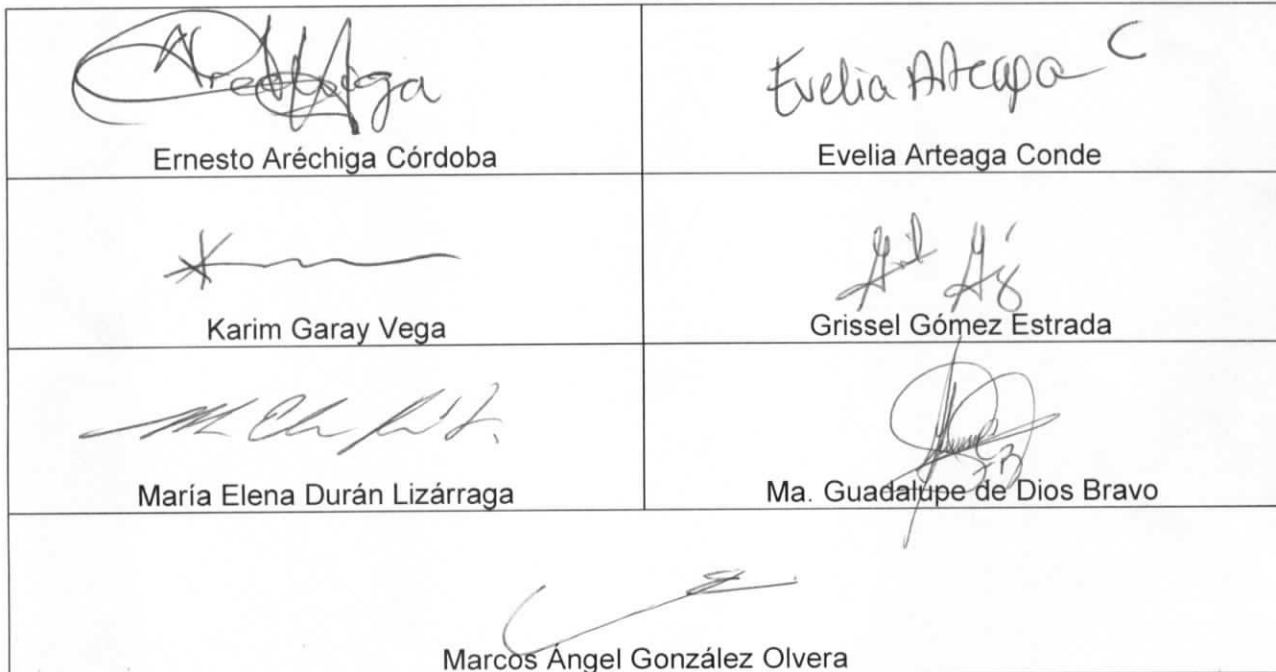 Evelia Arteaga C
Ernesto Aréchiga Córdoba
Evelia Arteaga Conde
Karim Garay Vega
Grissel Gómez Estrada
María Elena Durán Lizárraga
Ma. Guadalupe de Dios Bravo
Marcos Ángel González Olvera